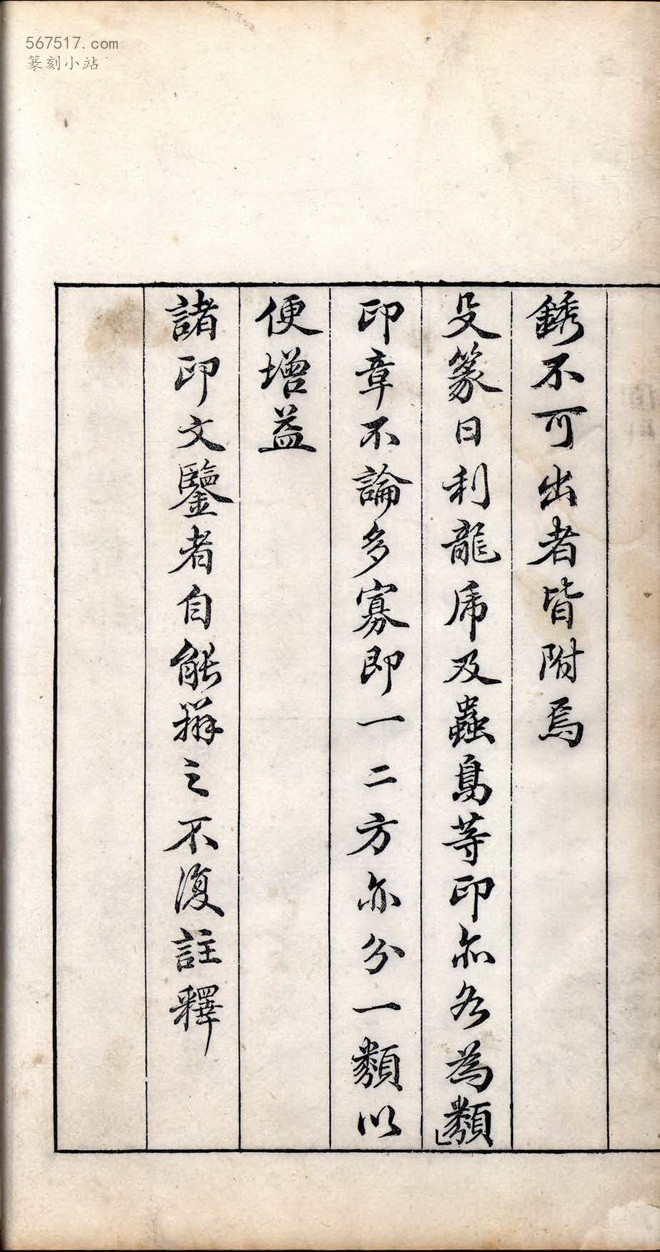 567517.com
篆刻小站
銹不可出者皆附焉
殳篆日利龍虎及蟲鳥等印亦各為類
印章不論多寡即一二方亦分一類以
便增益
諸印文鑒者自能辨之不復註釋